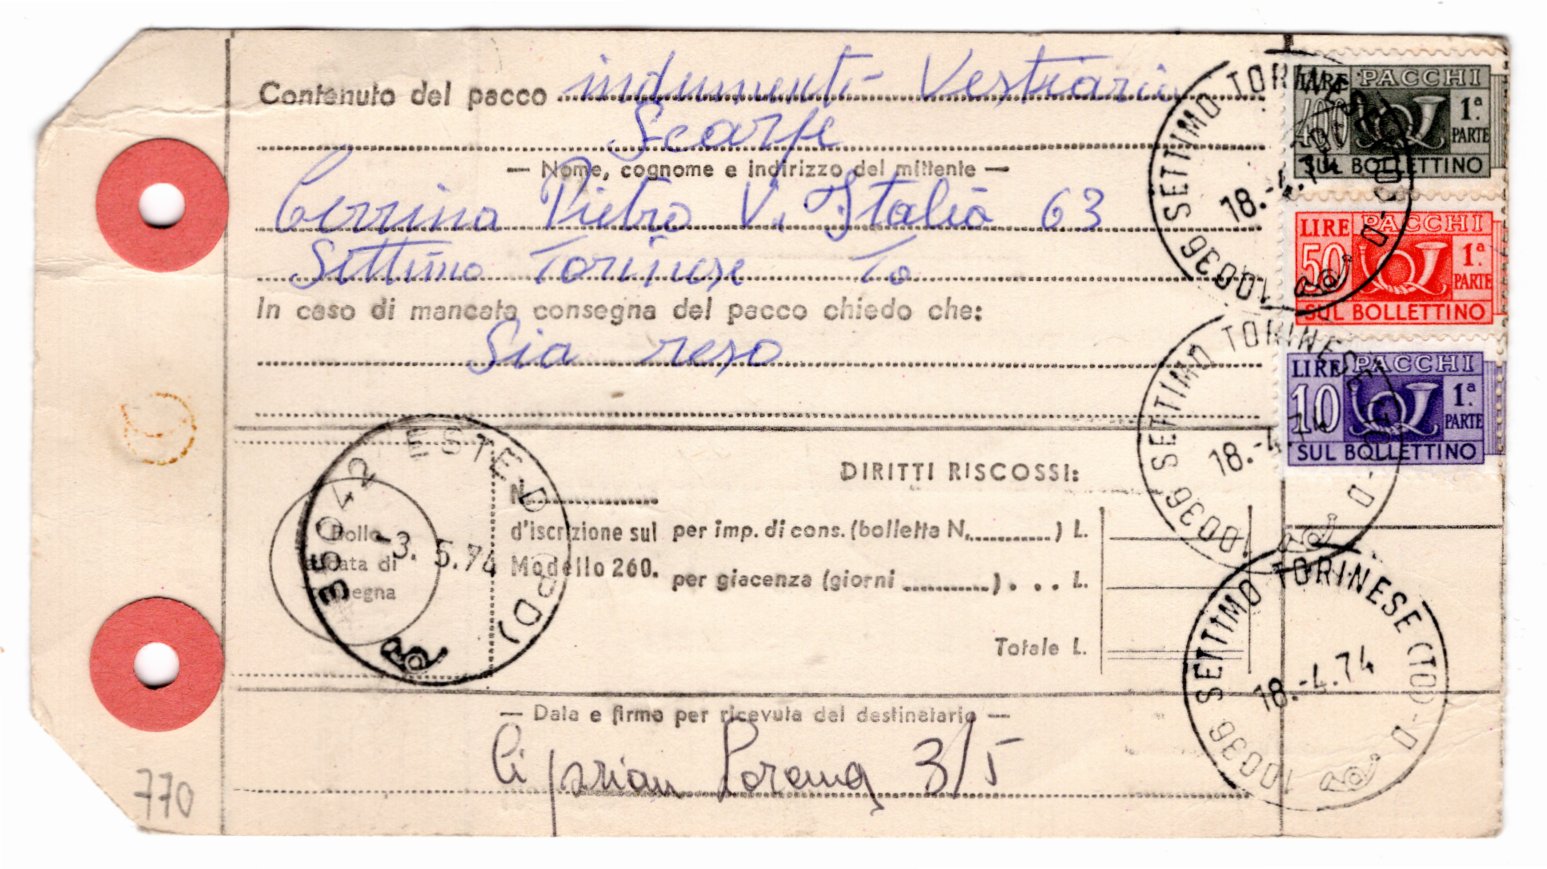 Contenuto del pacco indumenti Vestiario
Scarpe
— Nome, cognome e indirizzo del mittente —
Cerrina Pietro V. Italia 63
Settimo Torinese To
In caso di mancata consegna del pacco chiedo che:
Sia reso
LIRE PACCHI
400 1.ª
PARTE
SUL BOLLETTINO
LIRE PACCHI
50 1.ª
PARTE
SUL BOLLETTINO
LIRE PACCHI
10 1.ª
PARTE
SUL BOLLETTINO
10036 SETTIMO TORINESE (TO) - D
18.-4.74
10036 SETTIMO TORINESE (TO) - D
18.-4.74
10036 SETTIMO TORINESE (TO) - D
18.-4.74
35042 ESTE-D (PD)
-3. 5.74
Bollo
e data di
consegna
N.
d'iscrizione sul
Modello 260.
DIRITTI RISCOSSI:
per imp. di cons. (bolletta N. ) L.
per giacenza (giorni ) . . . L.
Totale L.
— Data e firma per ricevuta del destinatario —
Ciprian 3/5
770